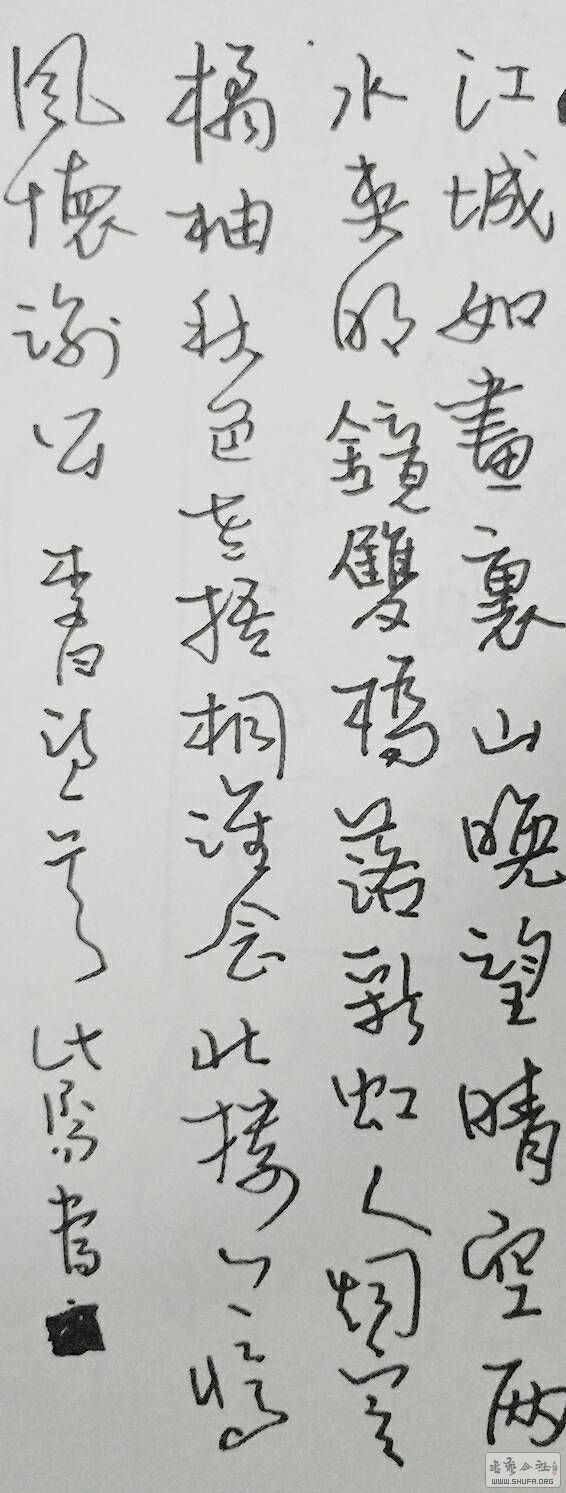 江城如畫裏山晚望晴空兩
水夾明鏡雙橋落彩虹人烟寒
橘柚秋色老梧桐誰念北樓上臨
風懷謝公 李白詩 書
書藝公社
WWW.SHUFA.ORG